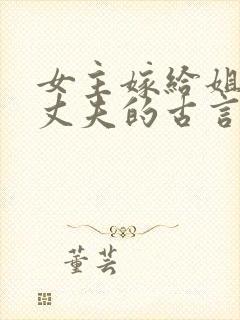 女主嫁给姐
丈夫的古言
董芸